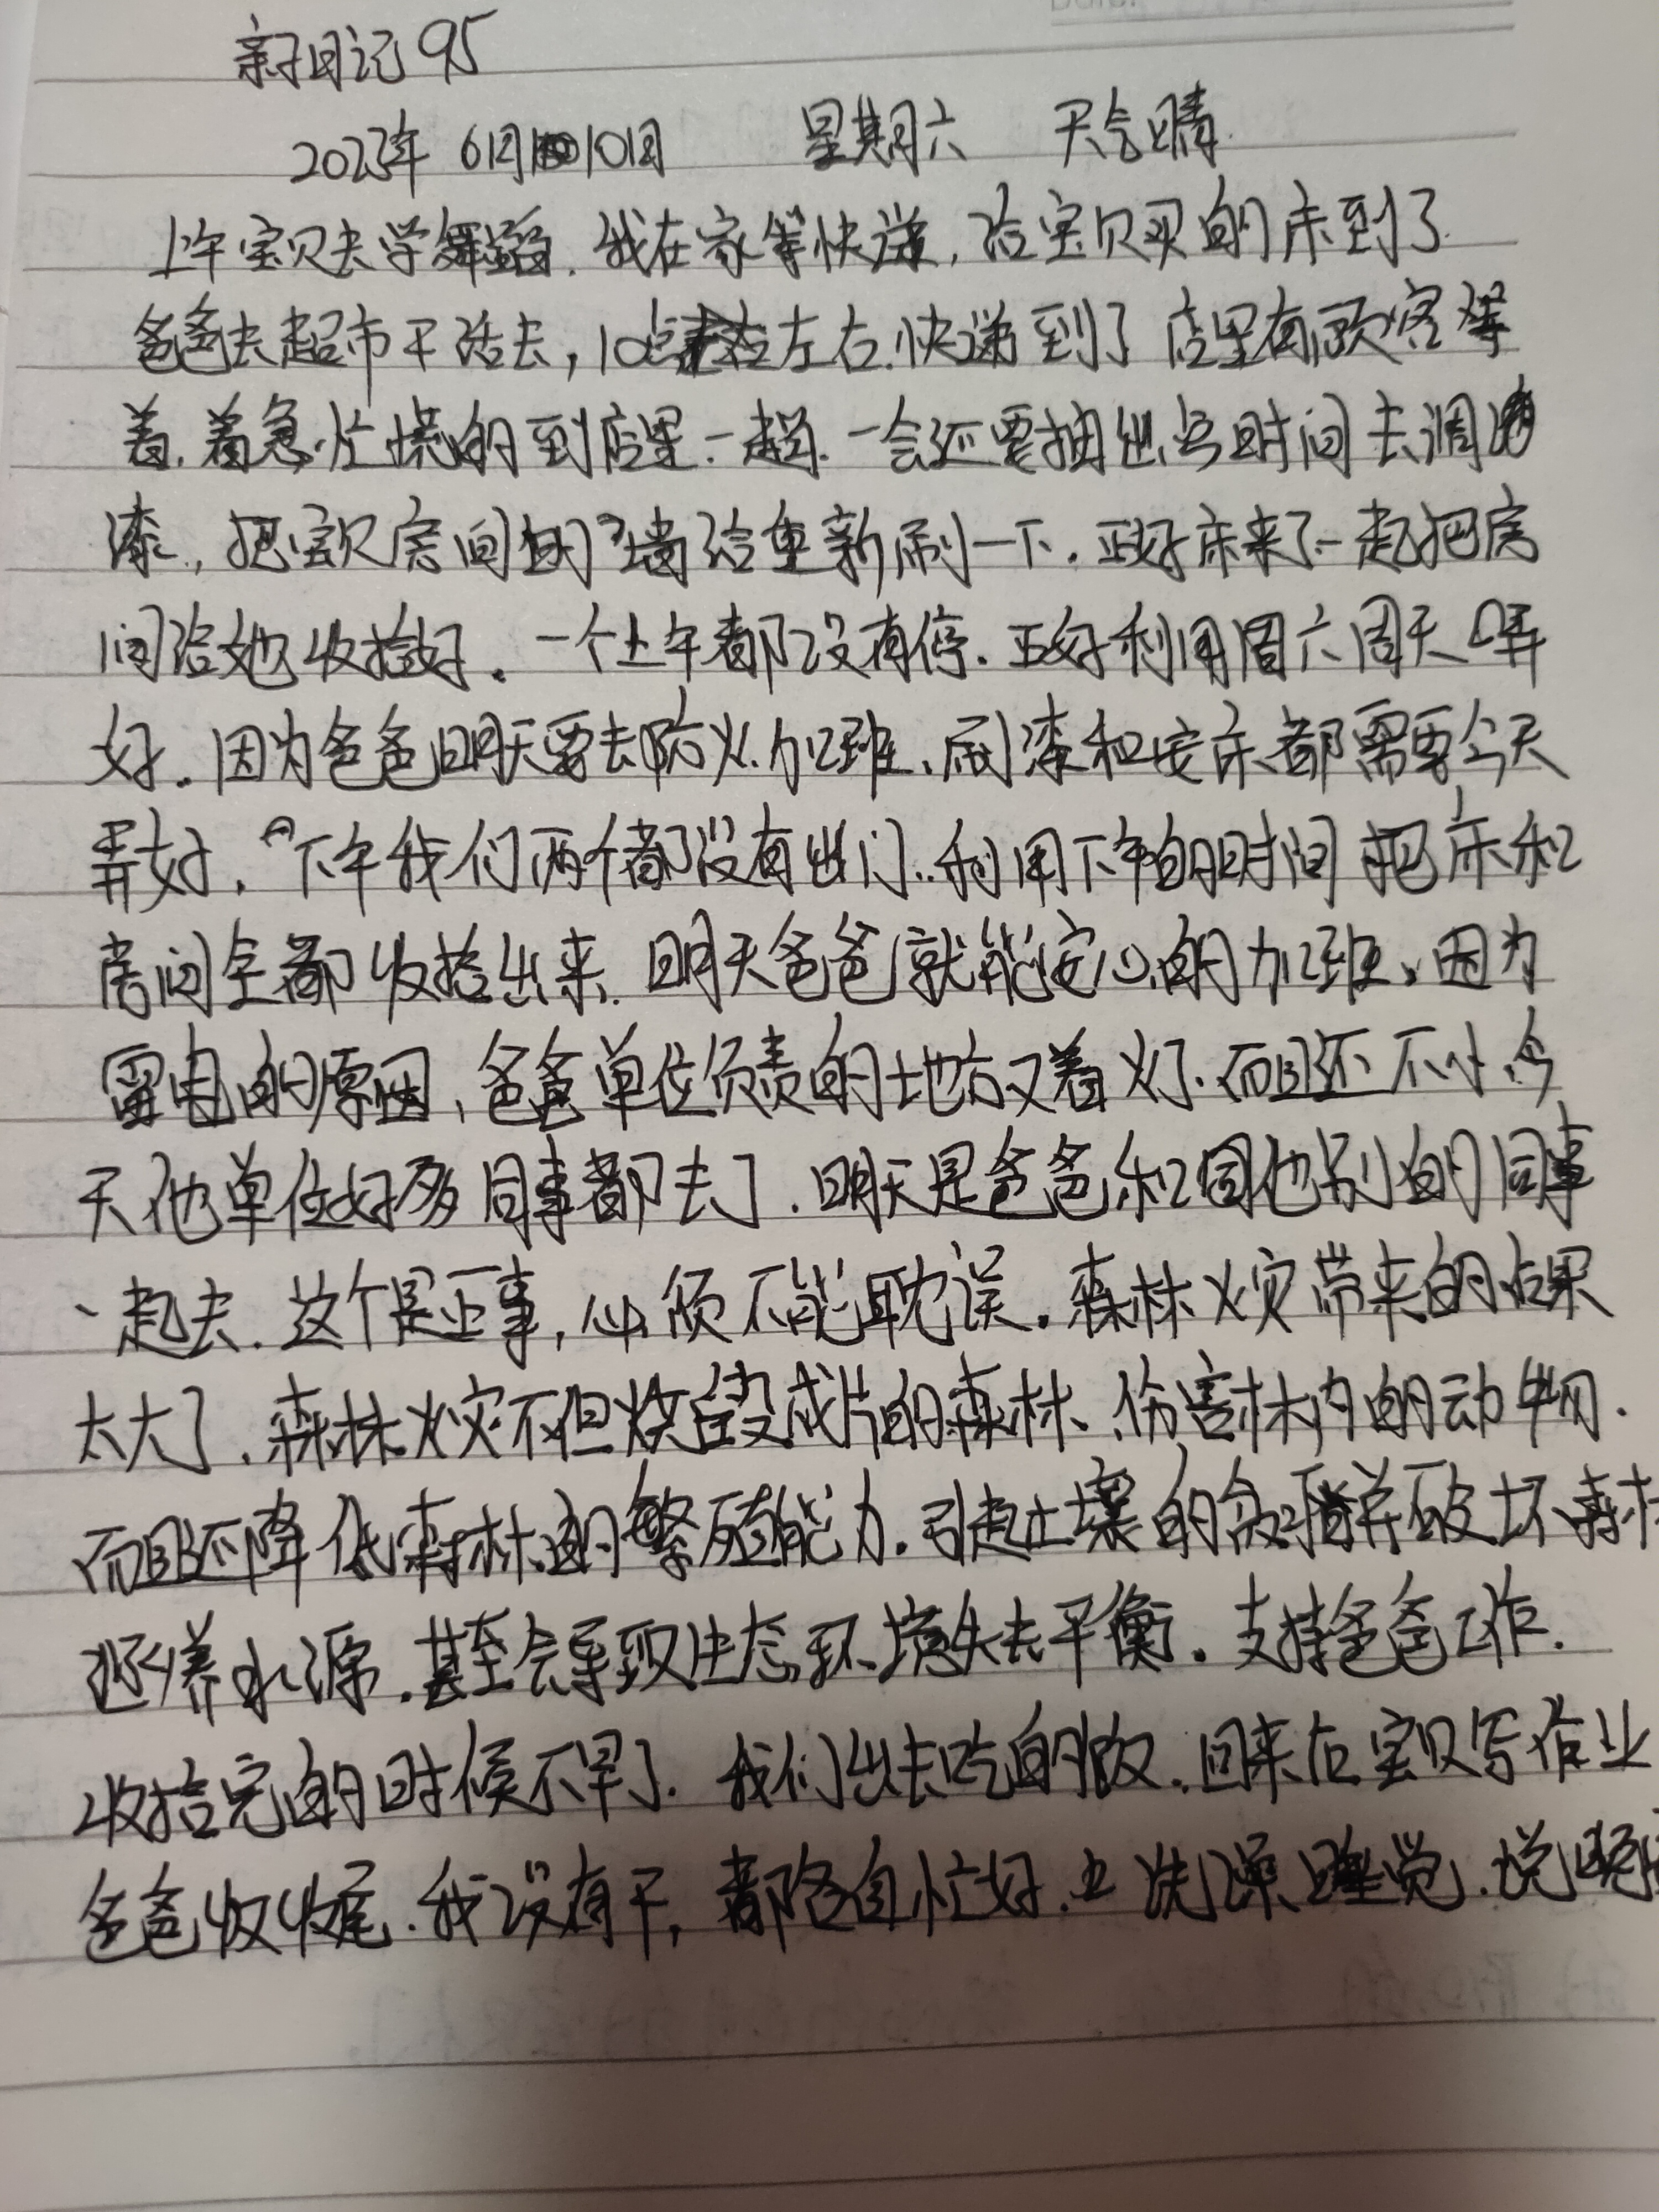 亲子日记95
2023年 6月10日 星期六 天气晴
上午宝贝去学舞蹈.我在家等快递,给宝贝买的床到了
爸爸去超市干活去,10点左右.快递到了店里有顾客等
着.着急忙慌的到店里一趟.一会还要抽出点时间去调
漆,把宝贝房间的墙给重新刷一下.正好床来了一起把房
间给她收拾好.一个上午都没有停.正好利用周六周天弄
好.因为爸爸明天要去防火加班.刷漆和安床都需要今天
弄好.下午我们两个都没有出门.利用下午的时间把床和
房间全都收拾出来.明天爸爸就能安心的加班.因为
雷电的原因,爸爸单位负责的地方又着火了.而且还不小.今
天他单位好多同事都去了.明天是爸爸和他别的同事
一起去.这个是正事,必须不能耽误.森林火灾带来的后果
太大了.森林火灾不但烧毁成片的森林、伤害林内的动物.
而且还降低森林的繁殖能力.引起土壤的贫瘠破坏森林
涵养水源.甚至会导致生态环境失去平衡.支持爸爸工作.
收拾完的时候不早了.我们出去吃的饭.回来后宝贝写作业
爸爸收收尾.我没有干,都各自忙好.洗澡睡觉.晚